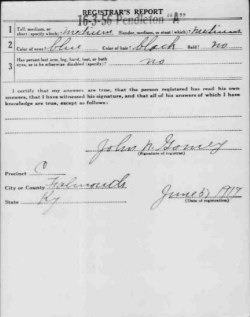 REGISTRAR'S REPORT
16-3-36 Pendleton "A"
1 Tall, medium, or short (specify which)? Medium Slender, medium, or stout (which)? Medium
2 Color of eyes? blue Color of hair? black Bald? no
3 Has person lost arm, leg, hand, foot, or both eyes, or is he otherwise disabled (specify)? no
I certify that my answers are true, that the person registered has read his own
answers, that I have witnessed his signature, and that all of his answers of which I have
knowledge are true, except as follows:
John M Gomey
(Signature of registrar)
Precinct C
City or County Falmouth
State Ky
June 5, 1917
(Date of registration)